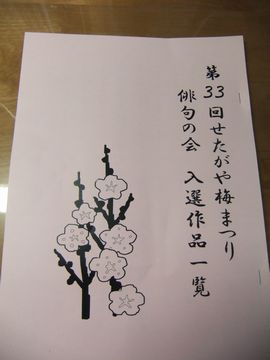 第33回せたがや梅まつり
俳句の会 入選作品一覧